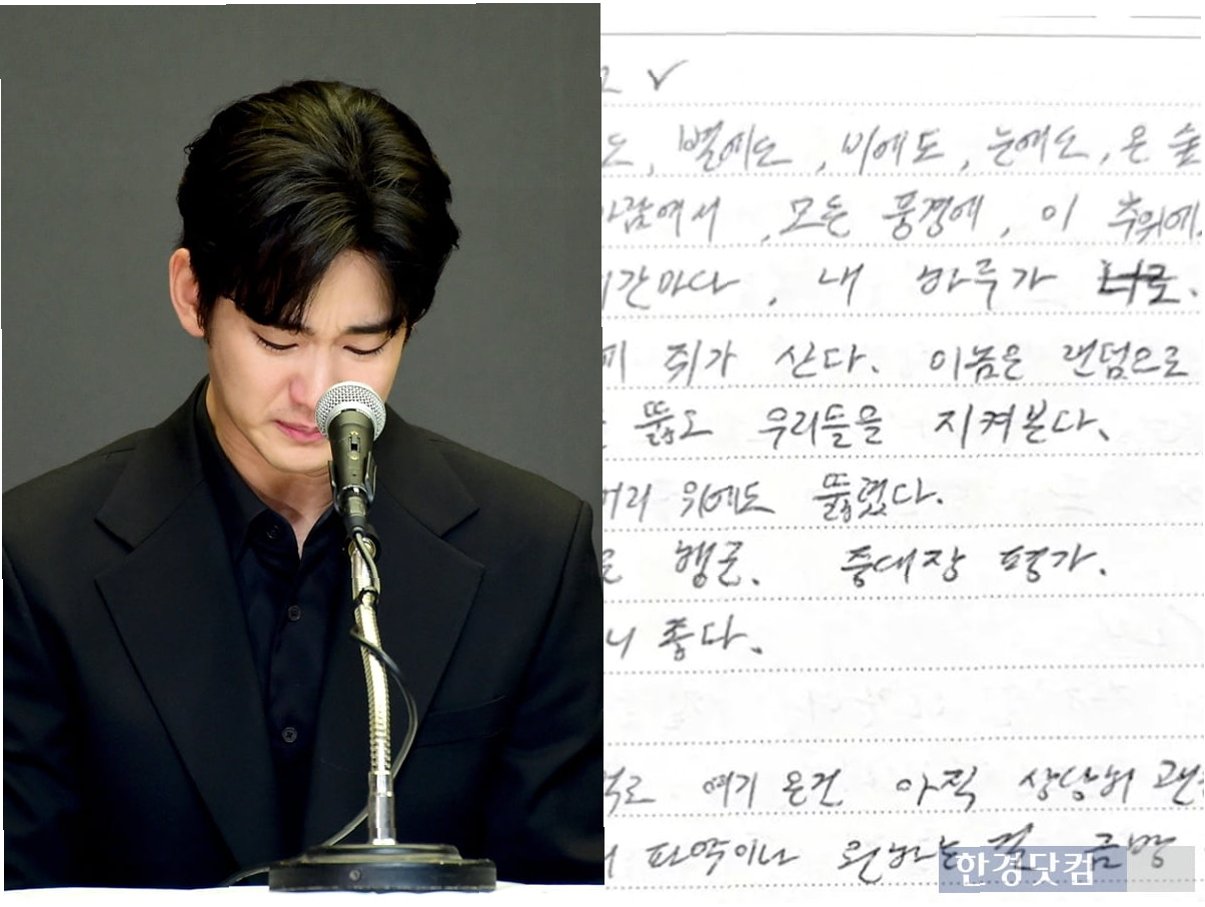 도, 별에도, 비에도, 눈에도, 온 숲
바람에서, 모든 풍경에, 이 추위에.
시간마다, 내 하루가 너로.
쥐가 산다. 이놈은 랜덤으로
뚫고 우리들을 지켜본다.
머리 위에도 뚫렸다.
행군. 중대장 평가.
니 좋다.
여기 온건 아직 상당히
파악이나 원하는 걸 금방
한경닷컴